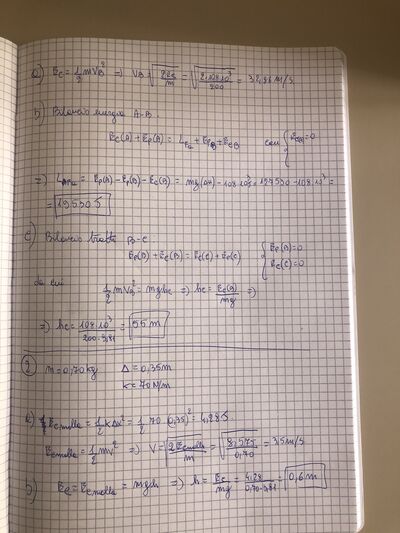 a) Ec = 1/2 mVB² => VB = √(2Ec/m) = √(2·108·10³/200) = 32,86 m/s
b) Bilancio energia A-B.
Ec(A) + Ep(A) = L + EpB + EcB con { Ec(A) = 0
=) L = Ep(A) - Ep(B) - Ec(B) = mg(Δh) - 108·10³ = 127530 - 108·10³ =
= 19530 J
c) Bilancio tratto B-C
Ep(B) + Ec(B) = Ec(C) + Ep(C) { Ep(B) = 0 Ec(C) = 0
da cui 1/2 mVB² = mghc => hc = Ec(B)/mg =>
=> hc = 108·10³/200·9,81 = 55 m
2) m = 0,70 kg Δ = 0,35 m
K = 70 N/m
a) Ee molla = 1/2 kΔx² = 1/2 70 (0,35)² = 4,28 J
Ee molla = 1/2 mv² => V = √(2 Ee molla/m) = √(8,575/0,70) = 3,5 m/s
b) Ec = Ee molla = mgh => h = Ec/mg = 4,28/0,70·9,81 = 0,6 m